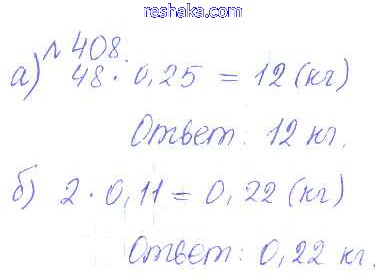 reshaka.com
№ 408.
а) 48 · 0,25 = 12 (кг)
Ответ: 12 кг.
б) 2 · 0,11 = 0,22 (кг)
Ответ: 0,22 кг.